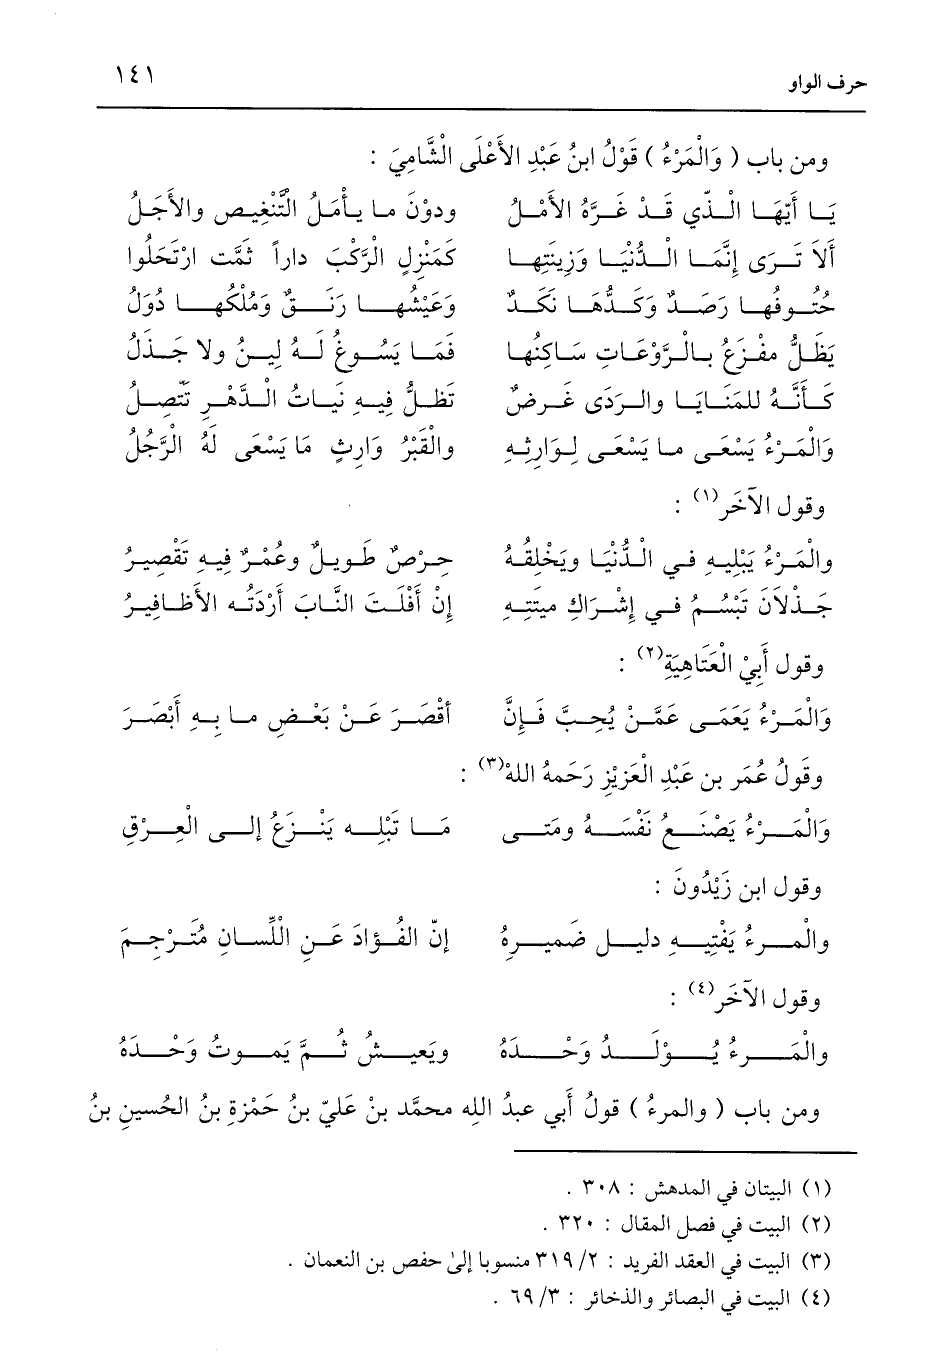 حرف الواو ١٤١
ومن باب ( وَالْمَرْءُ ) قَوْلُ ابنُ عَبْدِ الأَعْلَى الْشَّامِيَ :
يَا أَيّهَا الْذّي قَدْ غَرَّهُ الأمْلُ ودوْنَ ما يأْمَلُ التَّنْغِيصِ والأَجَلُ
أَلاَ تَرَى إِنَّمَا الْدُّنْيَا وَزِينَتُها كَمَنْزِلِ الْرَّكْبَ داراً ثَمَّتَ ارْتَحَلُوا
حُتُوفُها رَصَدٌ وَكَدُّهَا نَكَدٌ وَعَيْشُها رَنَقٌ وَمُلْكُها دُوَلُ
يَظَلُّ مفْزِعُ بالْرَّوْعَاتِ سَاكِنُها فَمَا يَسُوغُ لَهُ لِينُ ولا جَذَلُ
كَأَنَّهُ للمَنَايَا والرَدَى غَرضٌ تَظَلُّ فِيهِ نَبَاتُ الدَّهْرِ تَتّصِلُ
وَالْمَرْءُ يَسْعَى ما يَسْعَى لِوَارِثِهِ والْقَبْرُ وَارِثِ مَا يَسْعَى لَهُ الْرَّجُلُ
وقول الآخَر(١) :
والْمَرْءُ يَبْلِيهِ في الْدُّنْيَا ويَخْلِقُهُ حِرْصٌ طَوِيلٌ وعُمْرٌ فِيهِ تَقْصِيرُ
جَذْلَانَ تَبْسُمُ في إِشْرَاكِ مِيتَتِهِ إِنْ أَفْلَتَ النَّابَ أَرْدَتْهُ الأظَافِيرُ
وقول أَبيْ الْعَتَاهِيَةِ(٢) :
وَالْمَرْءُ يَعْمَى عَمَّنْ يُحِبَّ فَإِنَّ أقْصَرَ عَنْ بَعْضِ ما بِهِ أَبْصَرَ
وقَولُ عُمَر بن عَبْدِ الْعَزِيْزِ رَحَمهُ اللهُ(٣) :
وَالْمَرْءُ يَصْنَعُ نَفْسَهُ ومَتى مَا تَبْلِه يَنْزَعُ إلى الْعِرْقِ
وقول ابن زَيْدُونَ :
والْمرءُ يَفْتِيهِ دليل ضميرهُ إنّ الفُؤادَ عَنِ اللِّسانِ مُتَرْجِمَ
وقول الآخَر(٤) :
والْمَرءُ يُوْلَدُ وَحْدَهُ ويَعيشُ ثُمَّ يَموتُ وَحْدَهُ
ومن باب ( والمرءُ ) قولُ أبي عبدُ اللهِ محمَّد بنْ عَليّ بنُ حَمْزةِ بنُ الحُسينِ بنُ
(١) البيتان في المدهش : ٣٠٨ .
(٢) البيت في فصل المقال : ٣٢٠ .
(٣) البيت في العقد الفريد : ٢/ ٣١٩ منسوبا إلىٰ حفص بن النعمان .
(٤) البيت في البصائر والذخائر : ٣/ ٦٩ .